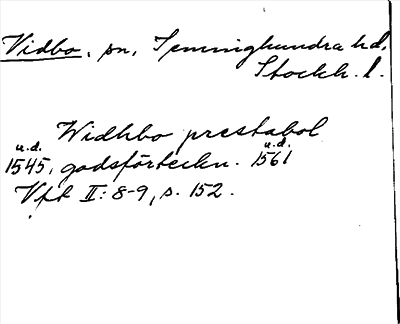 Vidbo, sn, Semminghundra hd,
Stockh. l.
Widhbo prestabol
u.d. u.d.
1545, godsförteckn. 1561
Vft II: 8-9, s. 152.